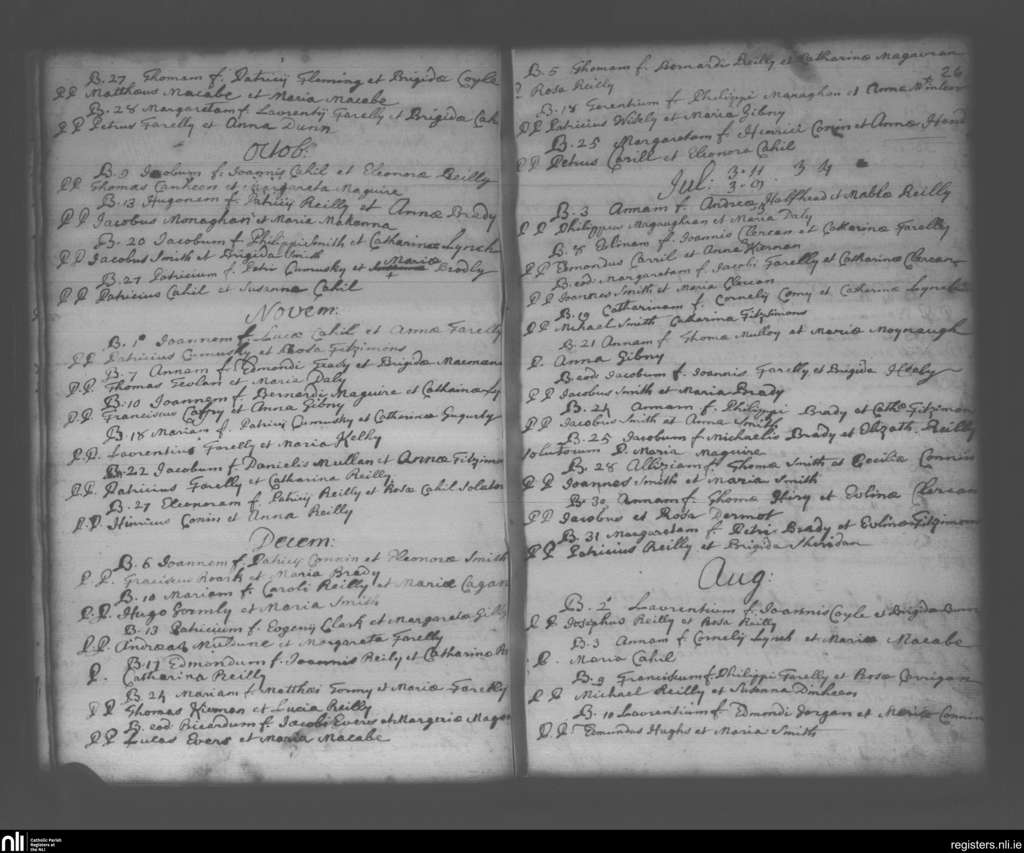 B. 27 Thomam f. Patricij Fleming et Brigidæ Coyle
PP Matthæus Macabe et Maria Macabe
B. 28 Margaretam f. Laurentij Farelly et Brigida Cah
PP Petrus Farelly et Anna Dunn
Octob:
B. 9 Jacobum f. Joannis Cahil et Eleonoræ Reilly
PP Thomas et Margareta Maguire
B. 13 Hugonem f. Patricij Reilly et Annæ Brady
PP Jacobus Monaghan et Maria Makanna
B. 20 Jacobum f. Philippi Smith et Catharinæ Lynch
PP Jacobus Smith et Brigida Smith
B. 27 Patricium f. Petri Cumusky et Mariæ Brodly
PP Patricius Cahil et Susanna Cahil
Novem:
B. 1 Joannem f. Lucæ Cahil et Annæ Farelly
PP Patricius Cumusky et Rosa Fitzimons
B. 7 Annam f. Edmondi Grady et Brigidæ Macmanu
P.P. Thomas Geolan et Maria Daly
B. 10 Joannem f. Bernardi Maguire et Catharinæ Ly
P.P. Franciscus Caffry et Anna Gibny
B. 18 Mariam f. Patricij Cumusky et Catherinæ Gugurty
P.P. Laurentius Farelly et Maria Kelly
B. 22 Jacobum f. Danielis Mullan et Annæ Fitzimo
P.P. Patricius Farelly et Catharina Reilly
B. 27 Eleonoram f. Patricij Reilly et Rosæ Cahil Solutor
P.P. Hinricus Conin et Anna Reilly
Decem:
B. 6 Joannem f. Patricij Connin et Eleonoræ Smith
P P. Franciscus Roark et Maria Brady
B. 10 Mariam f. Caroli Reilly et Mariæ Cagan
P.P. Hugo Gormly et Maria Smith
B. 13 Patricium f. Eugenij Clark et Margaretæ Gilly
P.P. Andreas Muldune et Margareta Farelly
B. 17 Edmondum f. Joannis Reily et Catharinæ
P. Catharina Reilly
B. 24 Mariam f. Matthæi Gormy et Mariæ Farelly
PP Thomas Kirnan et Lucia Reilly
B. eod Ricardum f. Jacobi Evers et Margeriæ Magau
PP Lucas Evers et Maria Macabe
26
B. 5 Thomam f. Bernardi Reilly et Catharinæ Magauran
P Rosa Reilly
B. 18 Terentium f. Philippi Monaghan et Anna Winters
PP Patricius Wikly et Maria Gibny
B. 25 Margaretam f. Henrici Conin et Annæ Hand
PP Petrus Carill et Eleonora Cahil
Jul: 3·11 · 3 4
3·9
B. 3 Annam f. Andreæ Halfhead et Mablæ Reilly
PP Philippus Magaughran et Maria Daly
B. 8 f. Joannis Clercan et Catharinæ Farelly
PP Edmondus Carril et Anna Kirnan
B. eod. Margaretam f. Jacobi Farelly et Catharinæ Clercan
PP Joannes Smith et Maria Clercan
B. 19 Catharinam f. Cornelij Comy et Catherinæ Lynch
PP Michael Smith Catharina Fitzsimons
B. 21 Annam f. Thoma Mulloy et Mariæ Moynaugh
P. Anna Gibny
B. eod Jacobum f. Joannis Farelly et Brigida Healy
PP Jacobus Smith et Maria Brady
B. 24 Annam f. Philippi Brady et Cath Fitzimon
PP Jacobus Smith et Anna Smith
B. 25 Jacobum f. Michaelis Brady et Elizath. Reilly
solutorum P. Maria Maguire
B. 28 Alliziam f. Thomæ Smith et Ceciliæ Connin
PP Joannes Smith et Maria Smith
B 30 Annam f. Thomæ et Evlinæ Clercan
PP Jacobus et Rosa Dermot
B. 31 Margaretam f. Petri Brady et Evlinæ Fitzimon
PP Patricius Reilly et Brigida Sheridan
Aug:
B. 2 Laurentium f. Joannis Coyle et Brigida
PP Josephus Reilly et Rosa Reilly
B. 3 Annam f Cornelij Lynch et Mariæ Macabe
P. Maria Cahil
B. 9 Franciscum f. Philippi Farelly et Rosæ Corrigan
PP Michael Reilly et Susanna
B. 10 Laurentium f. Edmondi Jorgan et Mariæ Connin
P.P. Edmundus Hughs et Maria Smith
nli Catholic Parish
Registers at
the NLI
registers.nli.ie